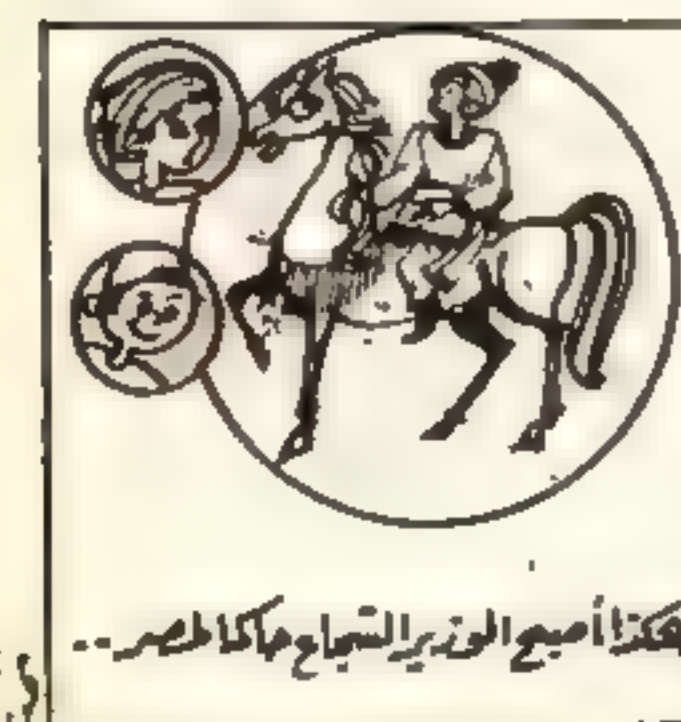 هكذا أصبح الوزير الشجاع حاكما لمصر..